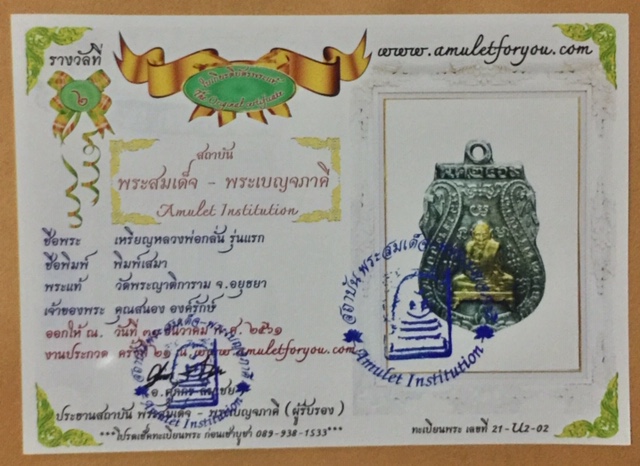 รางวัลที่
๖
www.amuletforyou.com
สถาบัน
พระสมเด็จ - พระเบญจภาคี
Amulet Institution
ชื่อพระ เหรียญหลวงพ่อกลั่น รุ่นแรก
ชื่อพิมพ์ พิมพ์เสมา
พระแท้ วัดพระญาติการาม จ.อยุธยา
เจ้าของพระ คุณสนอง องค์รักษ์
ออกให้ ณ. วันที่ ธันวาคม พ.ศ. ๒๕๖๑
งานประกวด ครั้งที่ ๒๑ ณ. www.amuletforyou.com
ประธานสถาบัน พระสมเด็จ - พระเบญจภาคี (ผู้รับรอง)
***โปรดเช็คทะเบียนพระ ก่อนเช่าบูชา 089-938-1533***
สถาบัน พระสมเด็จ
Amulet Institution
Amulet Institution
ทะเบียนพระ เลขที่ 21-U2-02